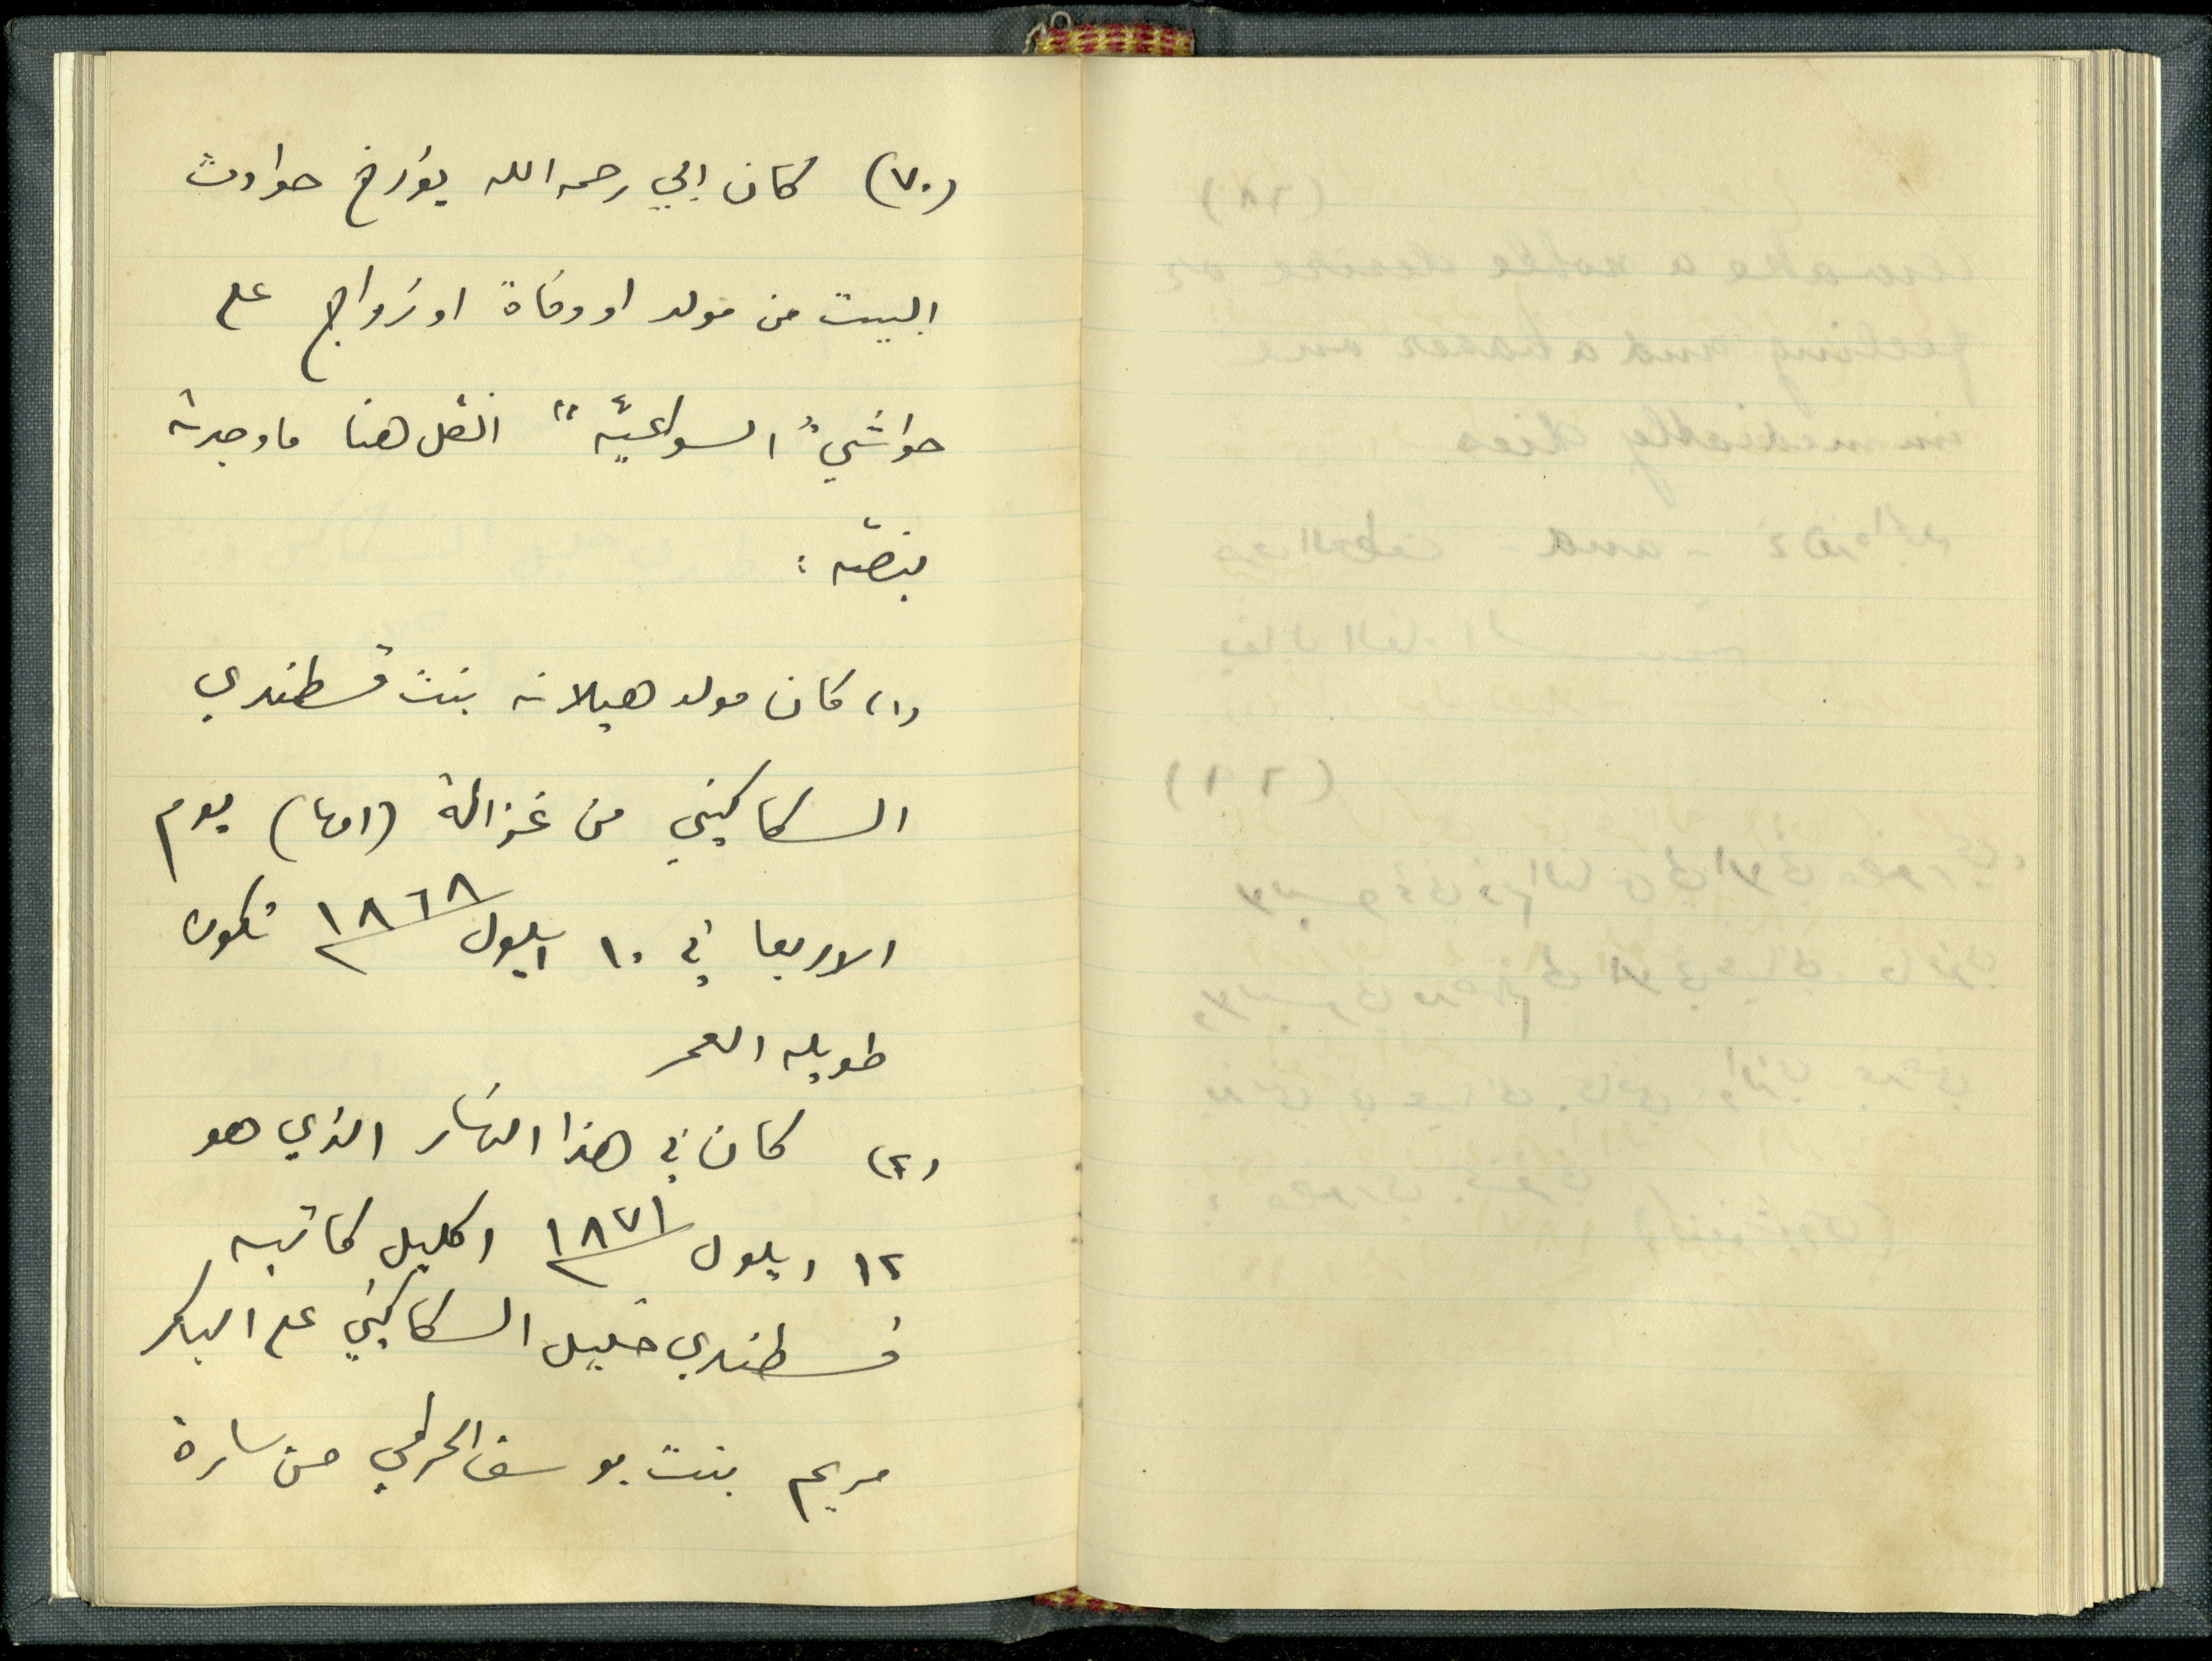 (٧٠) كان ابي رحمه الله يؤرخ حوادث
البيت من مولد او وفاة او زواج على
حواشي "السواعيّة" انقل هنا ما وجدته
بنصّه :
(١) كان مولد هيلانه بنت قسطندي
السكاكيني من غزالة (امها) يوم
الاربعا في ١٠ ايلول ١٨٦٨ تكون
طويله العمر
(٢) كان في هذا النهار الذي هو
١٢ ايلول ١٨٧١ اكليل كاتبه
قسطندي خليل السكاكيني على البكر
مريم بنت يوسف القرطي من سارة